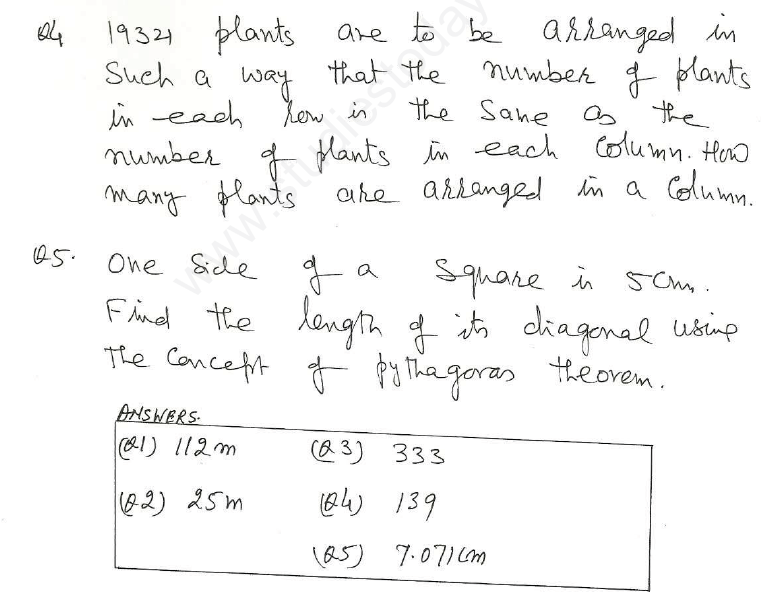 Q4 19321 plants are to be arranged in
Such a way that the number of plants
in each row is the Same as the
number of plants in each Column. How
many plants are arranged in a Column.
Q5. One Side of a Square is 5cm.
Find the length of its diagonal using
the Concept of pythagoras theorem.
ANSWERS.
(Q1) 112m (Q3) 333
(Q2) 25m (Q4) 139
(Q5) 7.071cm
www.studiestoday